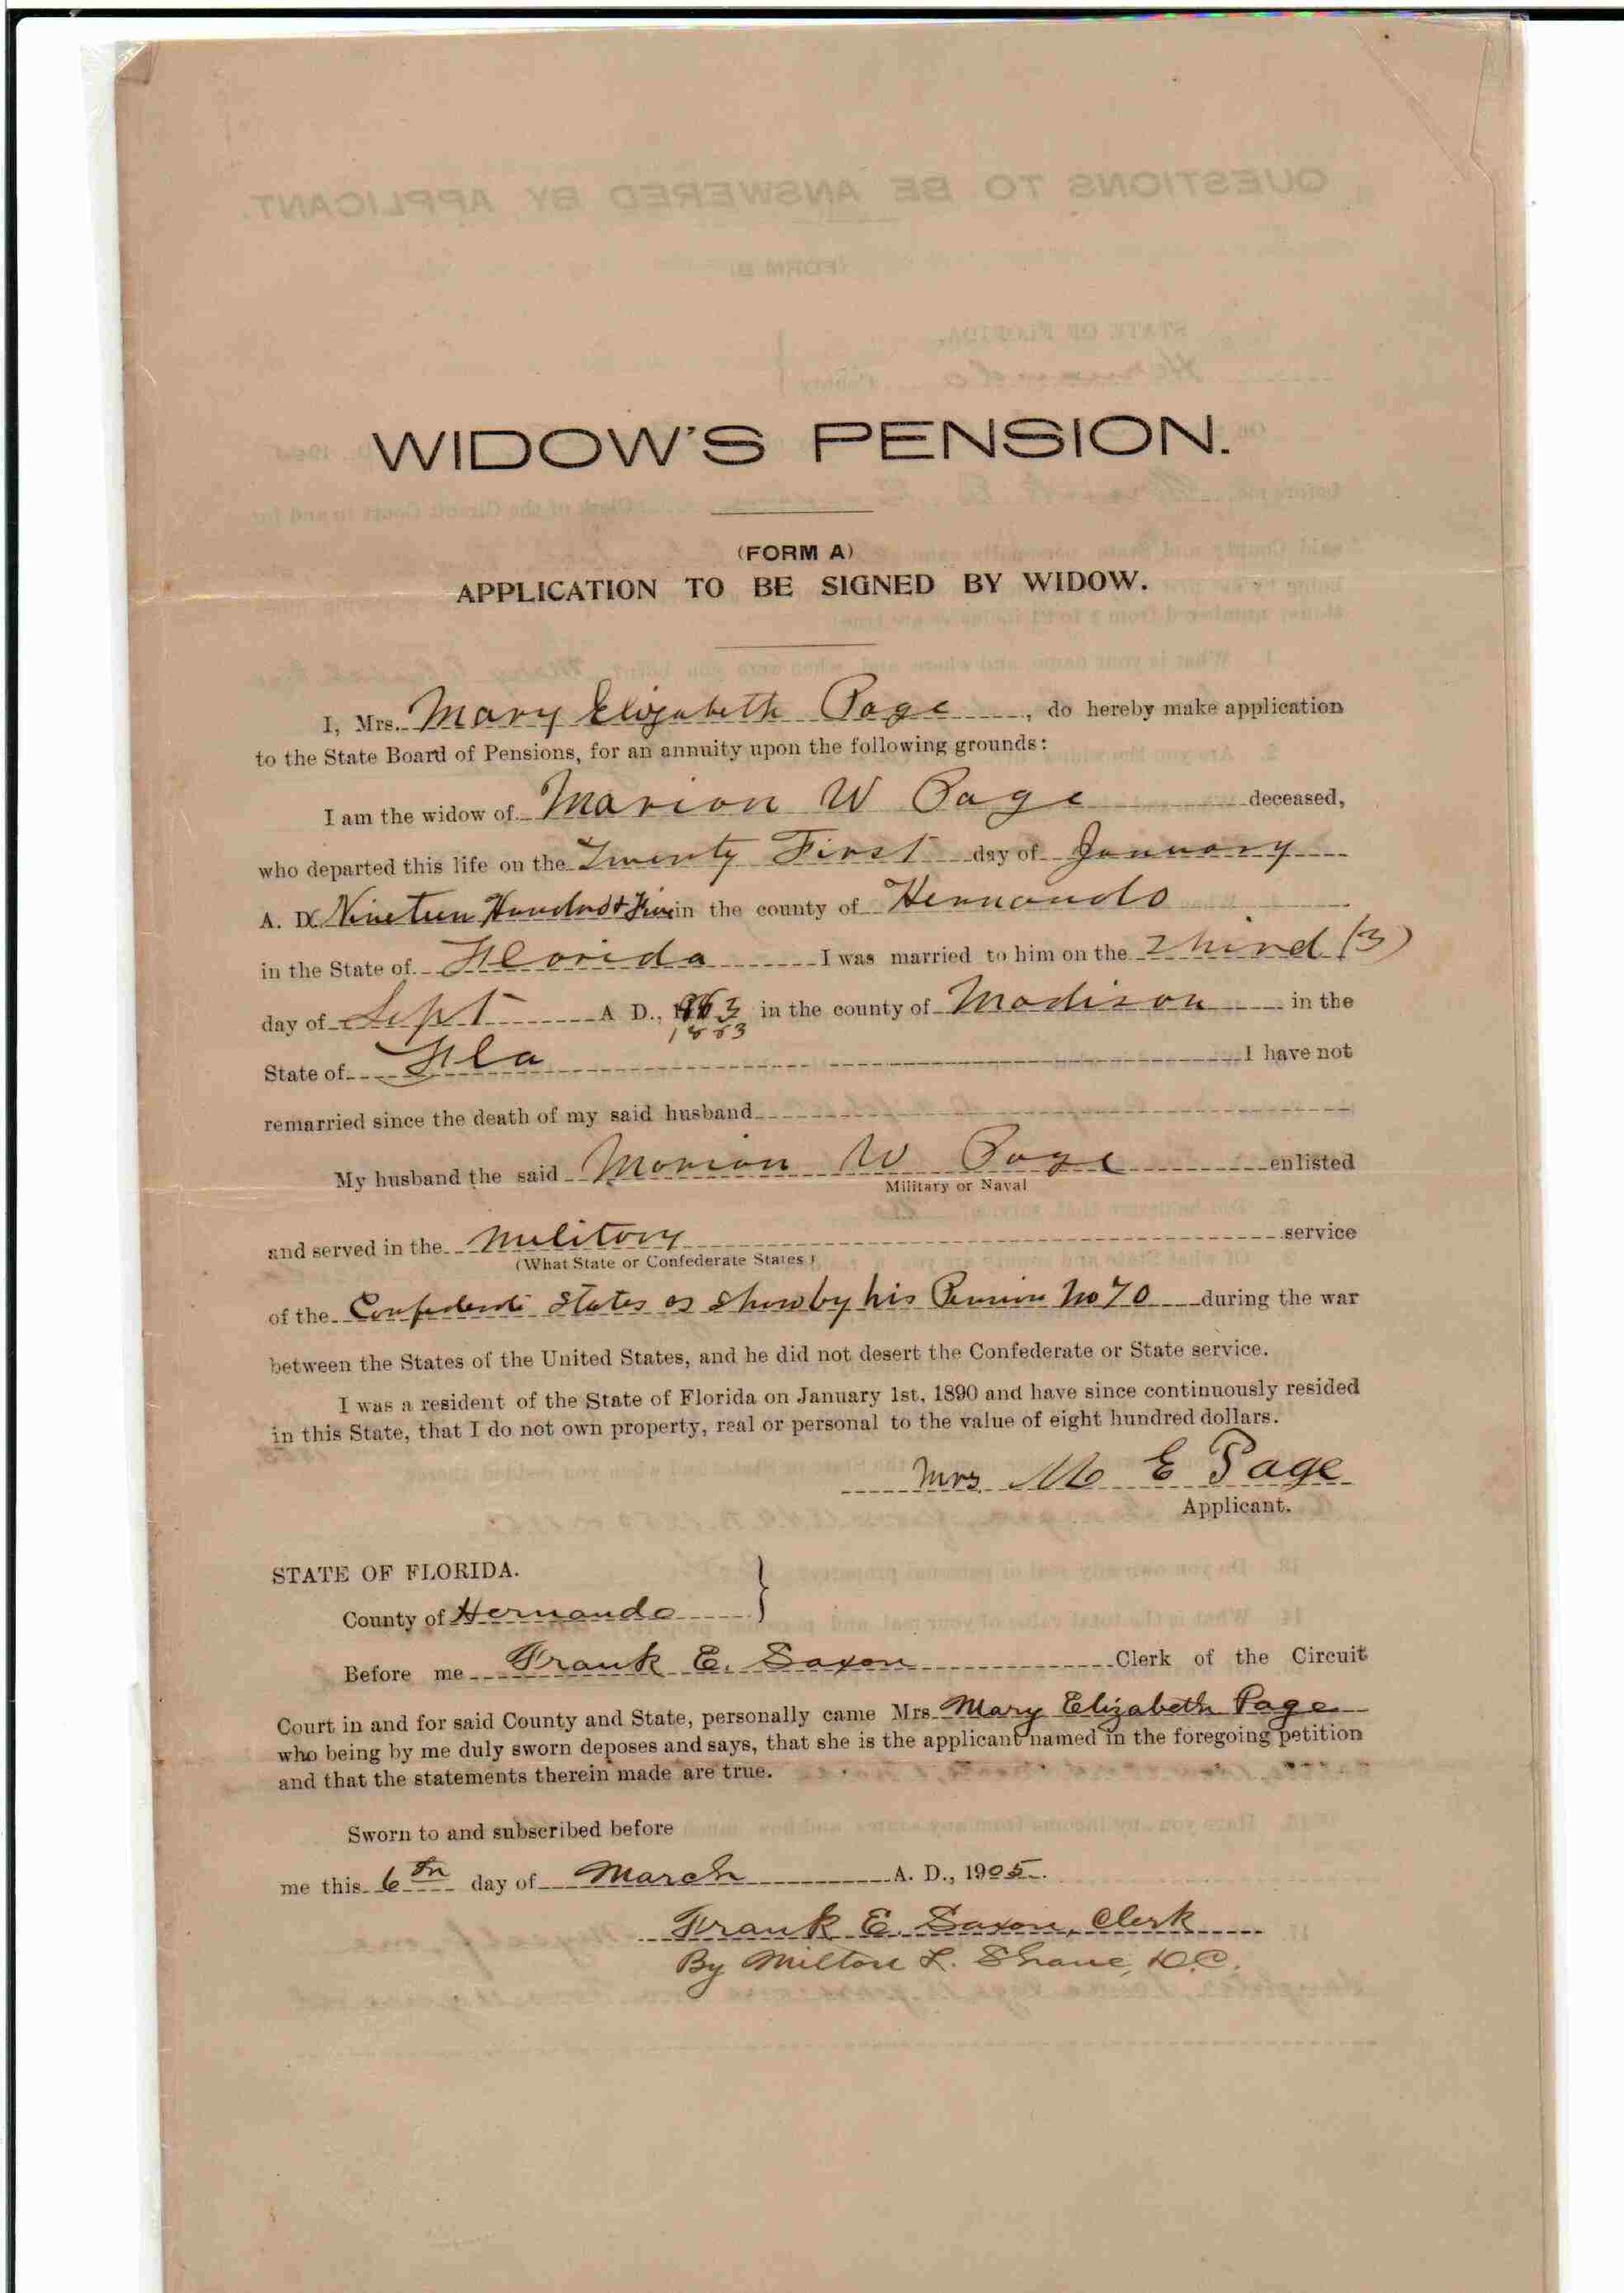 WIDOW'S PENSION.
(FORM A)
APPLICATION TO BE SIGNED BY WIDOW.
I, Mrs. Mary Elizabeth Page, do hereby make application
to the State Board of Pensions, for an annuity upon the following grounds:
I am the widow of Marion W Page deceased,
who departed this life on the Twenty First day of January
A. D. Nineteen Hundred & Five in the county of Hernando
in the State of Florida I was married to him on the Third (3)
day of Sept A. D., 1863 in the county of Madison in the
1863
State of Fla I have not
remarried since the death of my said husband
My husband the said Marion W Page enlisted
Military or Naval
and served in the Military service
(What State or Confederate States)
of the Confederate States as show by his Pension No 70 during the war
between the States of the United States, and he did not desert the Confederate or State service.
I was a resident of the State of Florida on January 1st, 1890 and have since continuously resided
in this State, that I do not own property, real or personal to the value of eight hundred dollars.
Mrs M E Page
Applicant.
STATE OF FLORIDA.
County of Hernando
Before me Frank E. Saxon Clerk of the Circuit
Court in and for said County and State, personally came Mrs Mary Elizabeth Page
who being by me duly sworn deposes and says, that she is the applicant named in the foregoing petition
and that the statements therein made are true.
Sworn to and subscribed before
me this 6th day of March A. D., 1905.
Frank E. Saxon, Clerk
By Milton L. Shane, D.C.